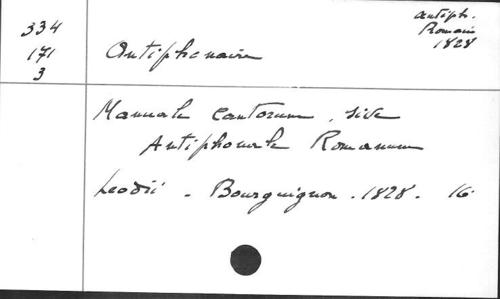 334
171
3
Antiph.
Romain
1828
Antiphonaire
Manuale Cantorum, sive
Antiphonale Romanum
Leodii - Bourguignon. 1828. 16